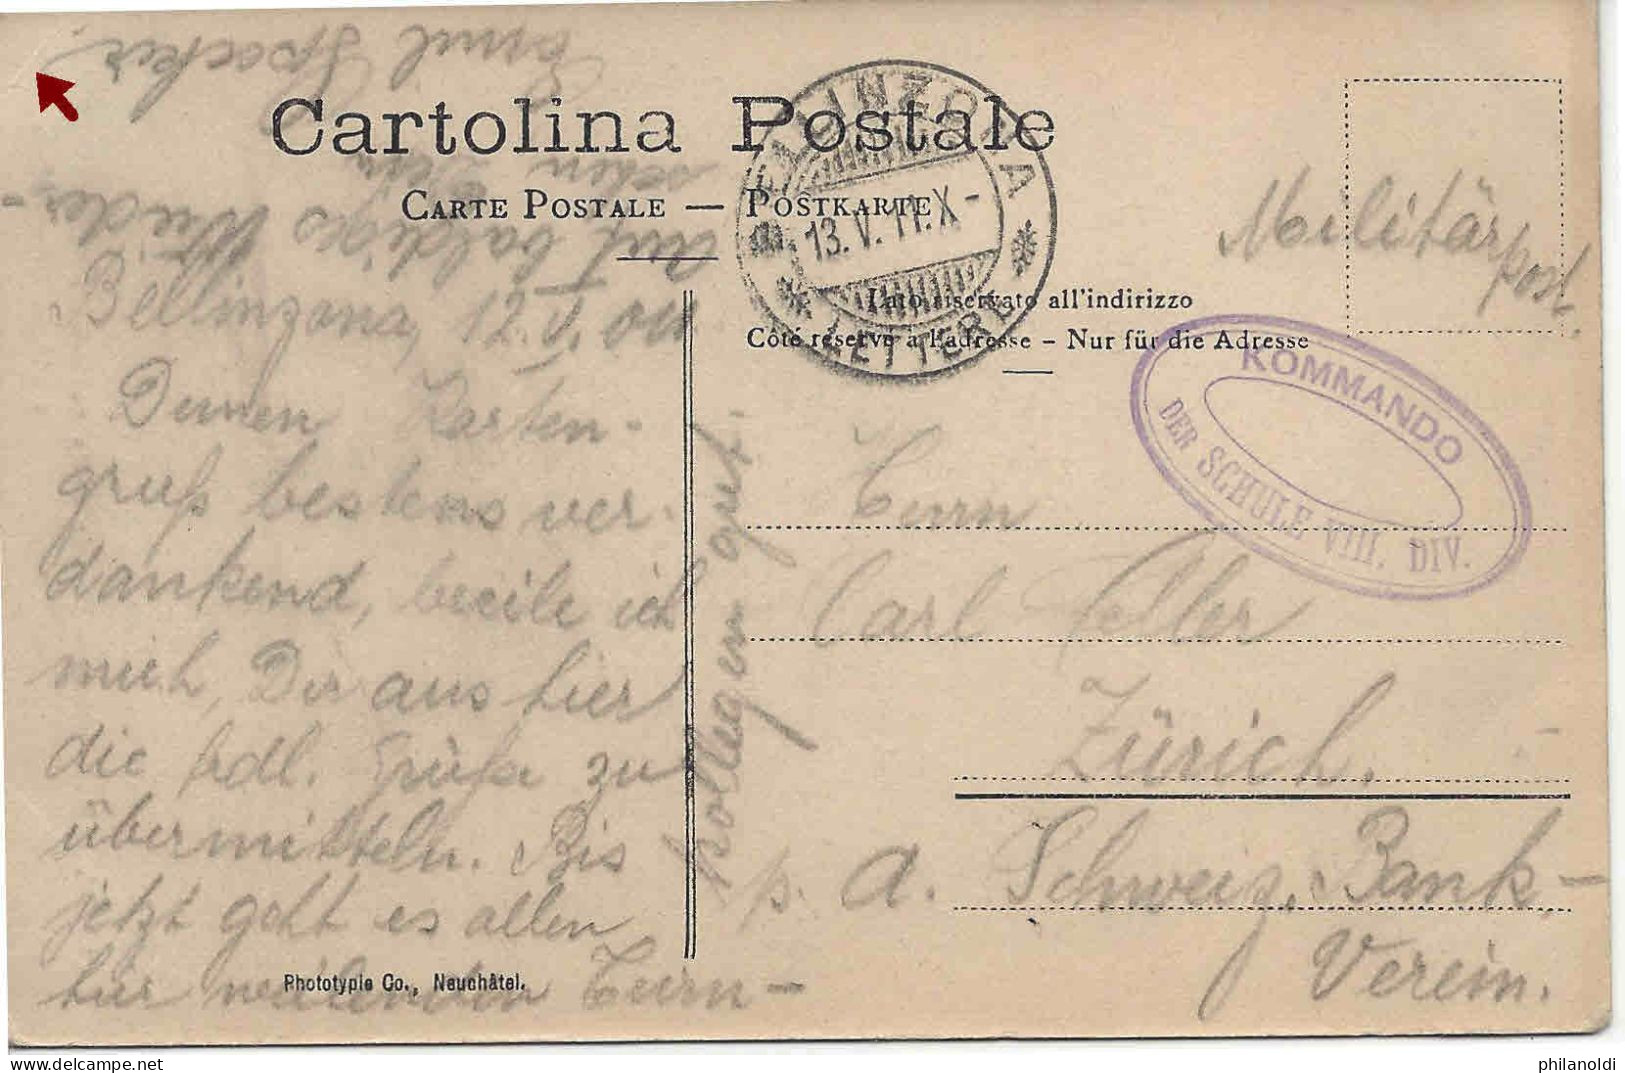 Cartolina Postale
CARTE POSTALE — POSTKARTE
Lato riservato all'indirizzo
Côté réservé à l'adresse – Nur für die Adresse
BELLINZONA
13.V.11.X-
LETTERE
Militärpost.
KOMMANDO
DER SCHULE VIII. DIV.
Bellinzona, 12.V.
Deinen Karten-
gruß bestens ver-
dankend, beeile ich
mich, Dir aus hier
die frdl. Grüße zu
übermitteln. Bis
jetzt geht es allen
hier weilenden Turn-
kollegen gut.
Auf baldiges Wieder-
sehen
Emil
Herrn
Carl
Zürich.
p. a. Schweiz. Bank-
Verein.
Phototypie Co., Neuchâtel.
philanoldi